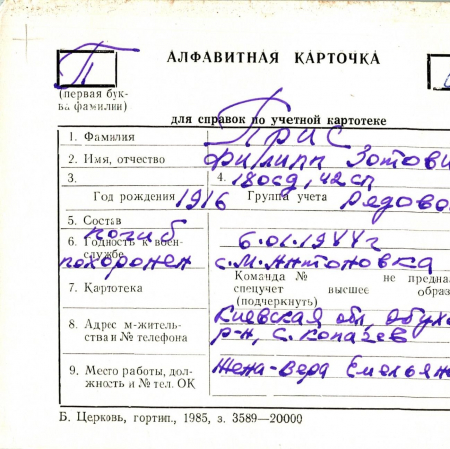 П
АЛФАВИТНАЯ КАРТОЧКА
(первая бук-
ва фамилии)
для справок по учетной картотеке
1. Фамилия Прис
2. Имя, отчество Филипп Зотови
3. 4. 180сд, 42сп
Год рождения 1916 Группа учета Рядово
5. Состав
погиб 6.01.1944г
6. Годность к воен-
службе
похоронен с.М.Антоновка
7. Картотека Команда № не предна
спецучет высшее образ
(подчеркнуть)
8. Адрес м-житель-
ства и № телефона
Киевская обл, Обух
р-н, с. Копачев
9. Место работы, дол-
жность и № тел. ОК
Жена-Вера Емельян
Б. Церковь, гортип., 1985, з. 3589—20000